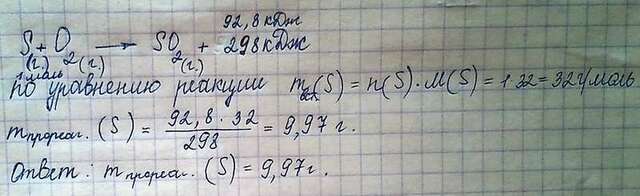 92,8 кДж
S + O₂ → SO₂ + 298 кДж
(г.) (г.) (г.)
1 моль
по уравнению реакции m (S) = n(S) · M(S) = 1·32 = 32 г/моль
m прореаг. (S) = 92,8 · 32 / 298 = 9,97 г.
Ответ: m прореаг. (S) = 9,97 г.